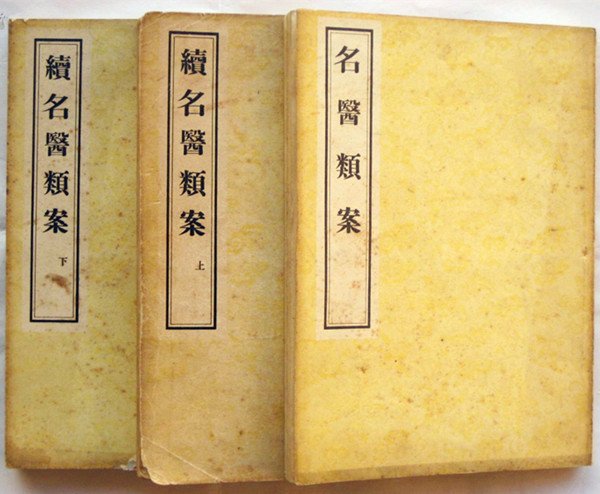 名醫類案
續名醫類案 上
續名醫類案 下